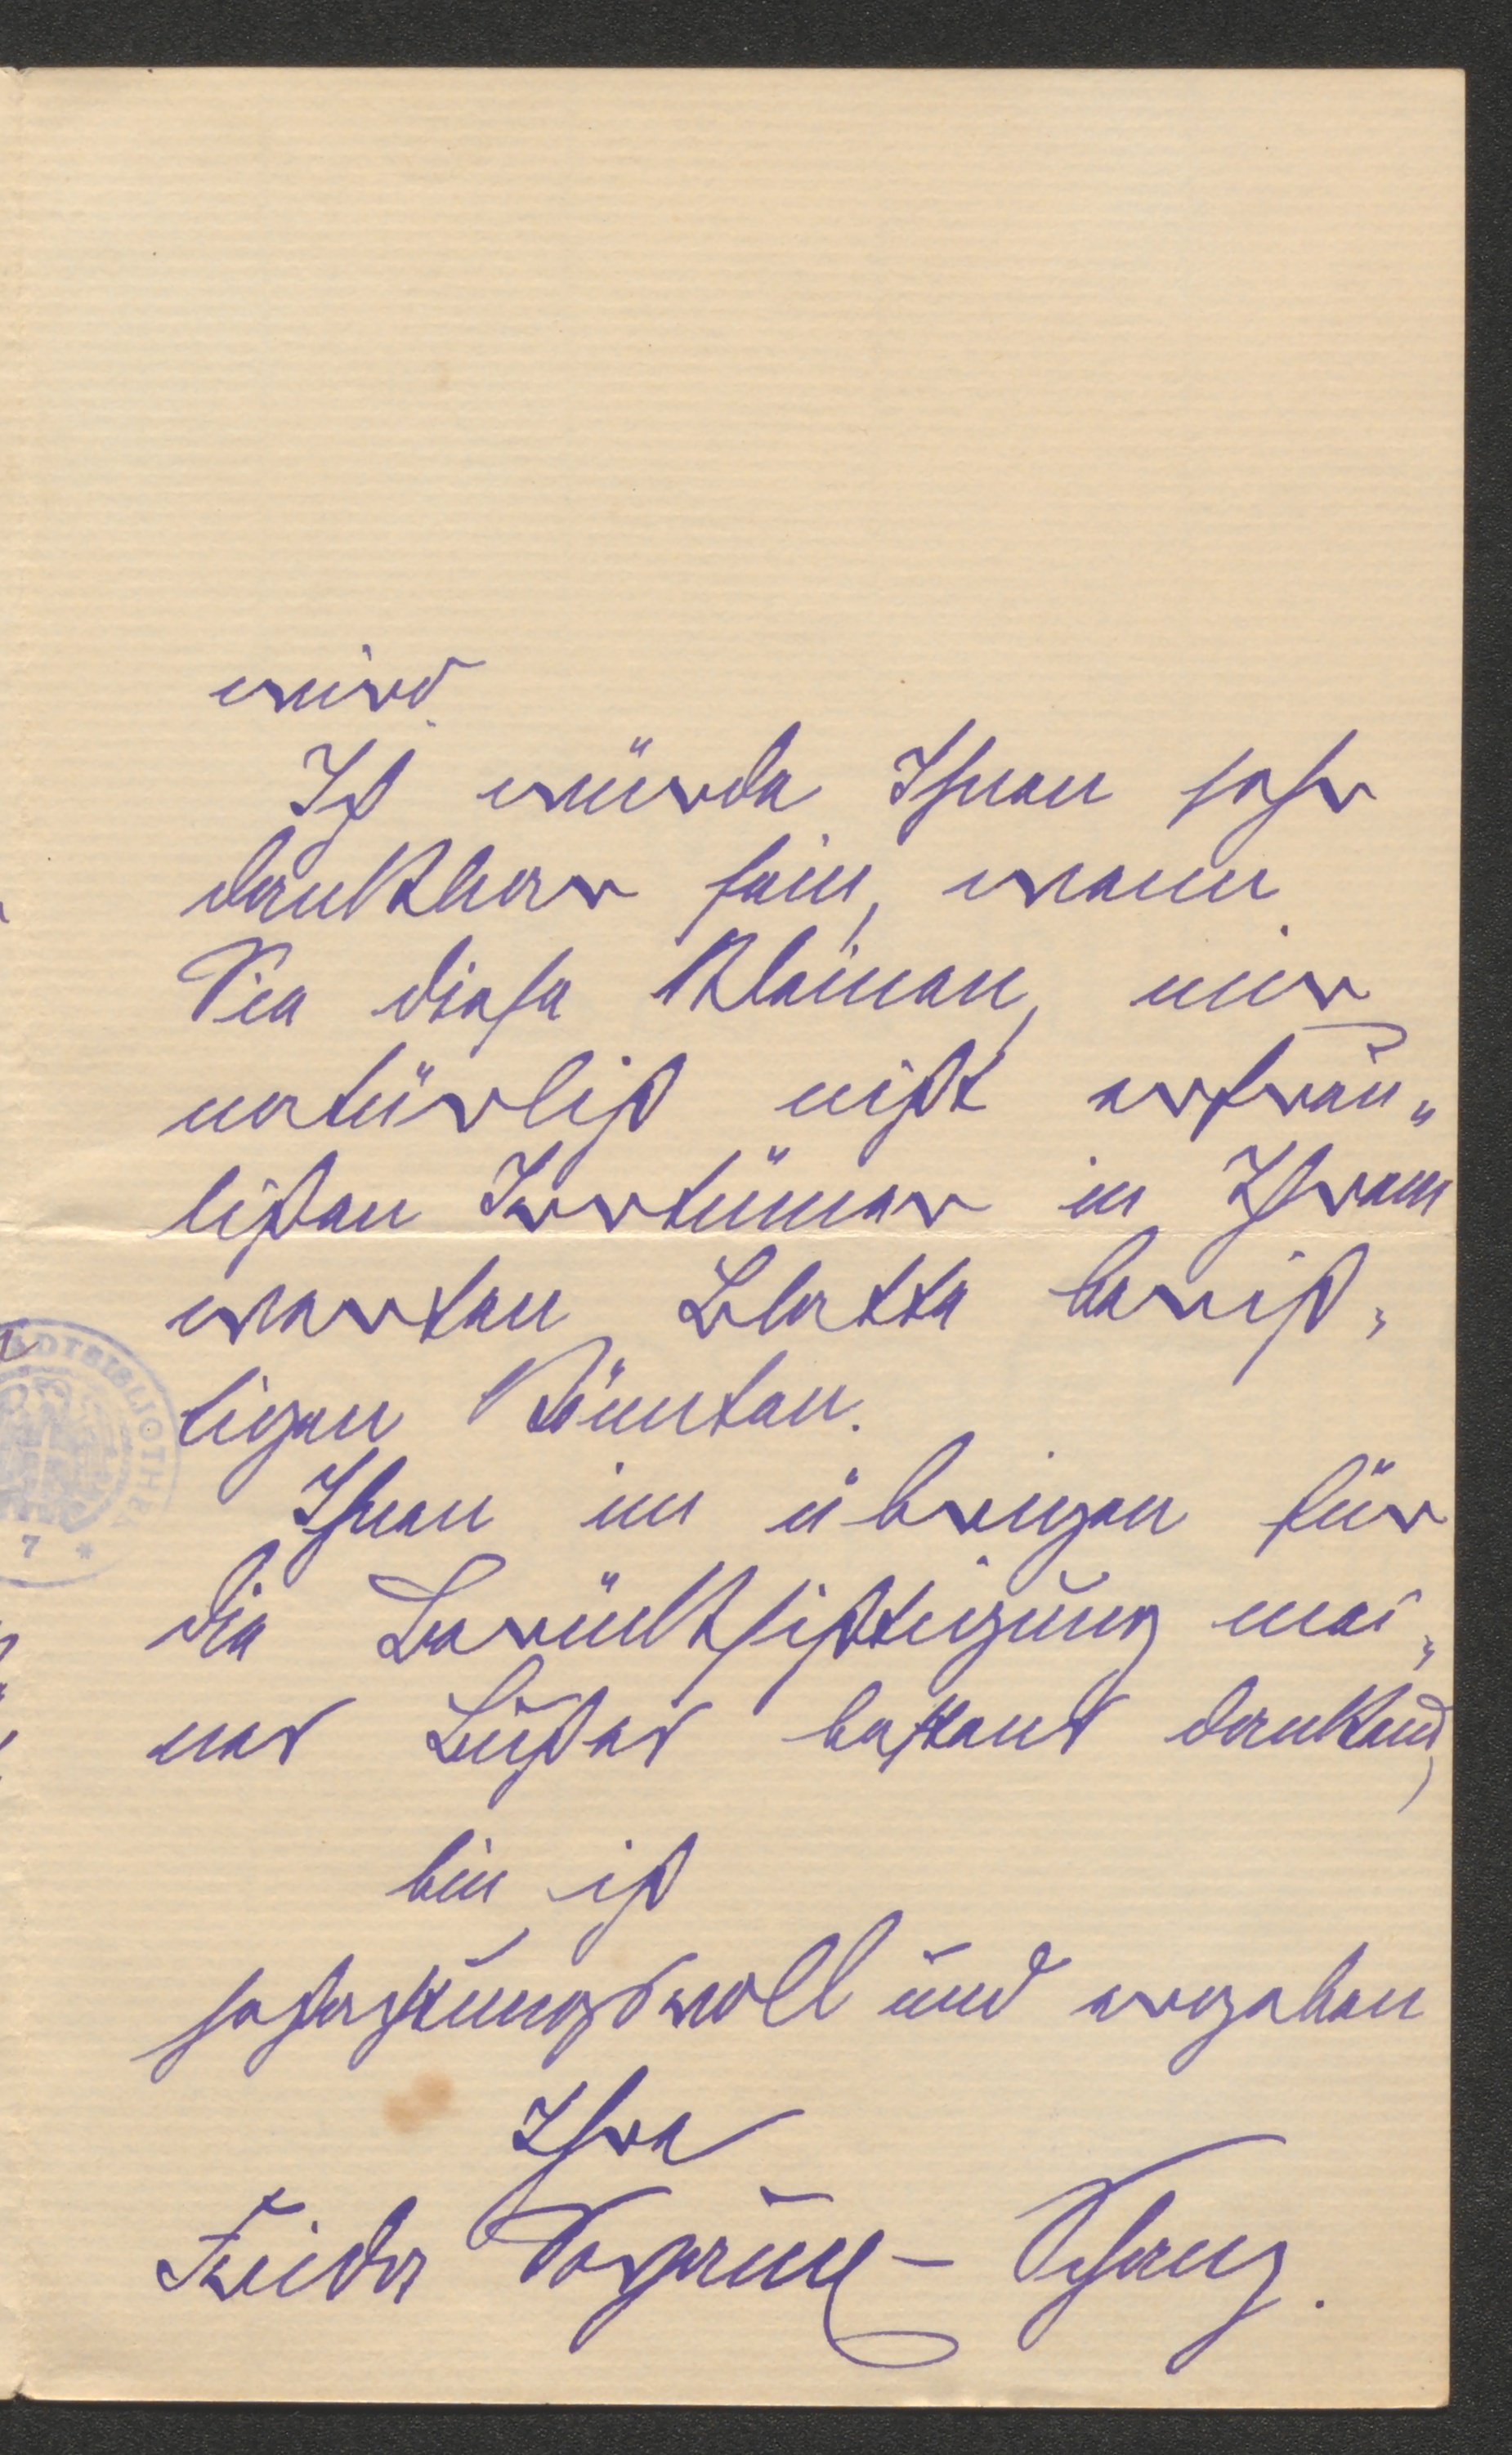 wird.
Ich würde Ihnen sehr
dankbar sein, wenn
Sie diese kleinen, mir
natürlich nicht erfreu„
lichen Irrtümer in Ihrem
werten Blatte berich„
tigen könnten.
Ihnen im übrigen für
die Berücksichtigung mei„
nes Buches bestens dankend,
bin ich
hochachtungsvoll und ergeben
Ihre
Frida Schanz.